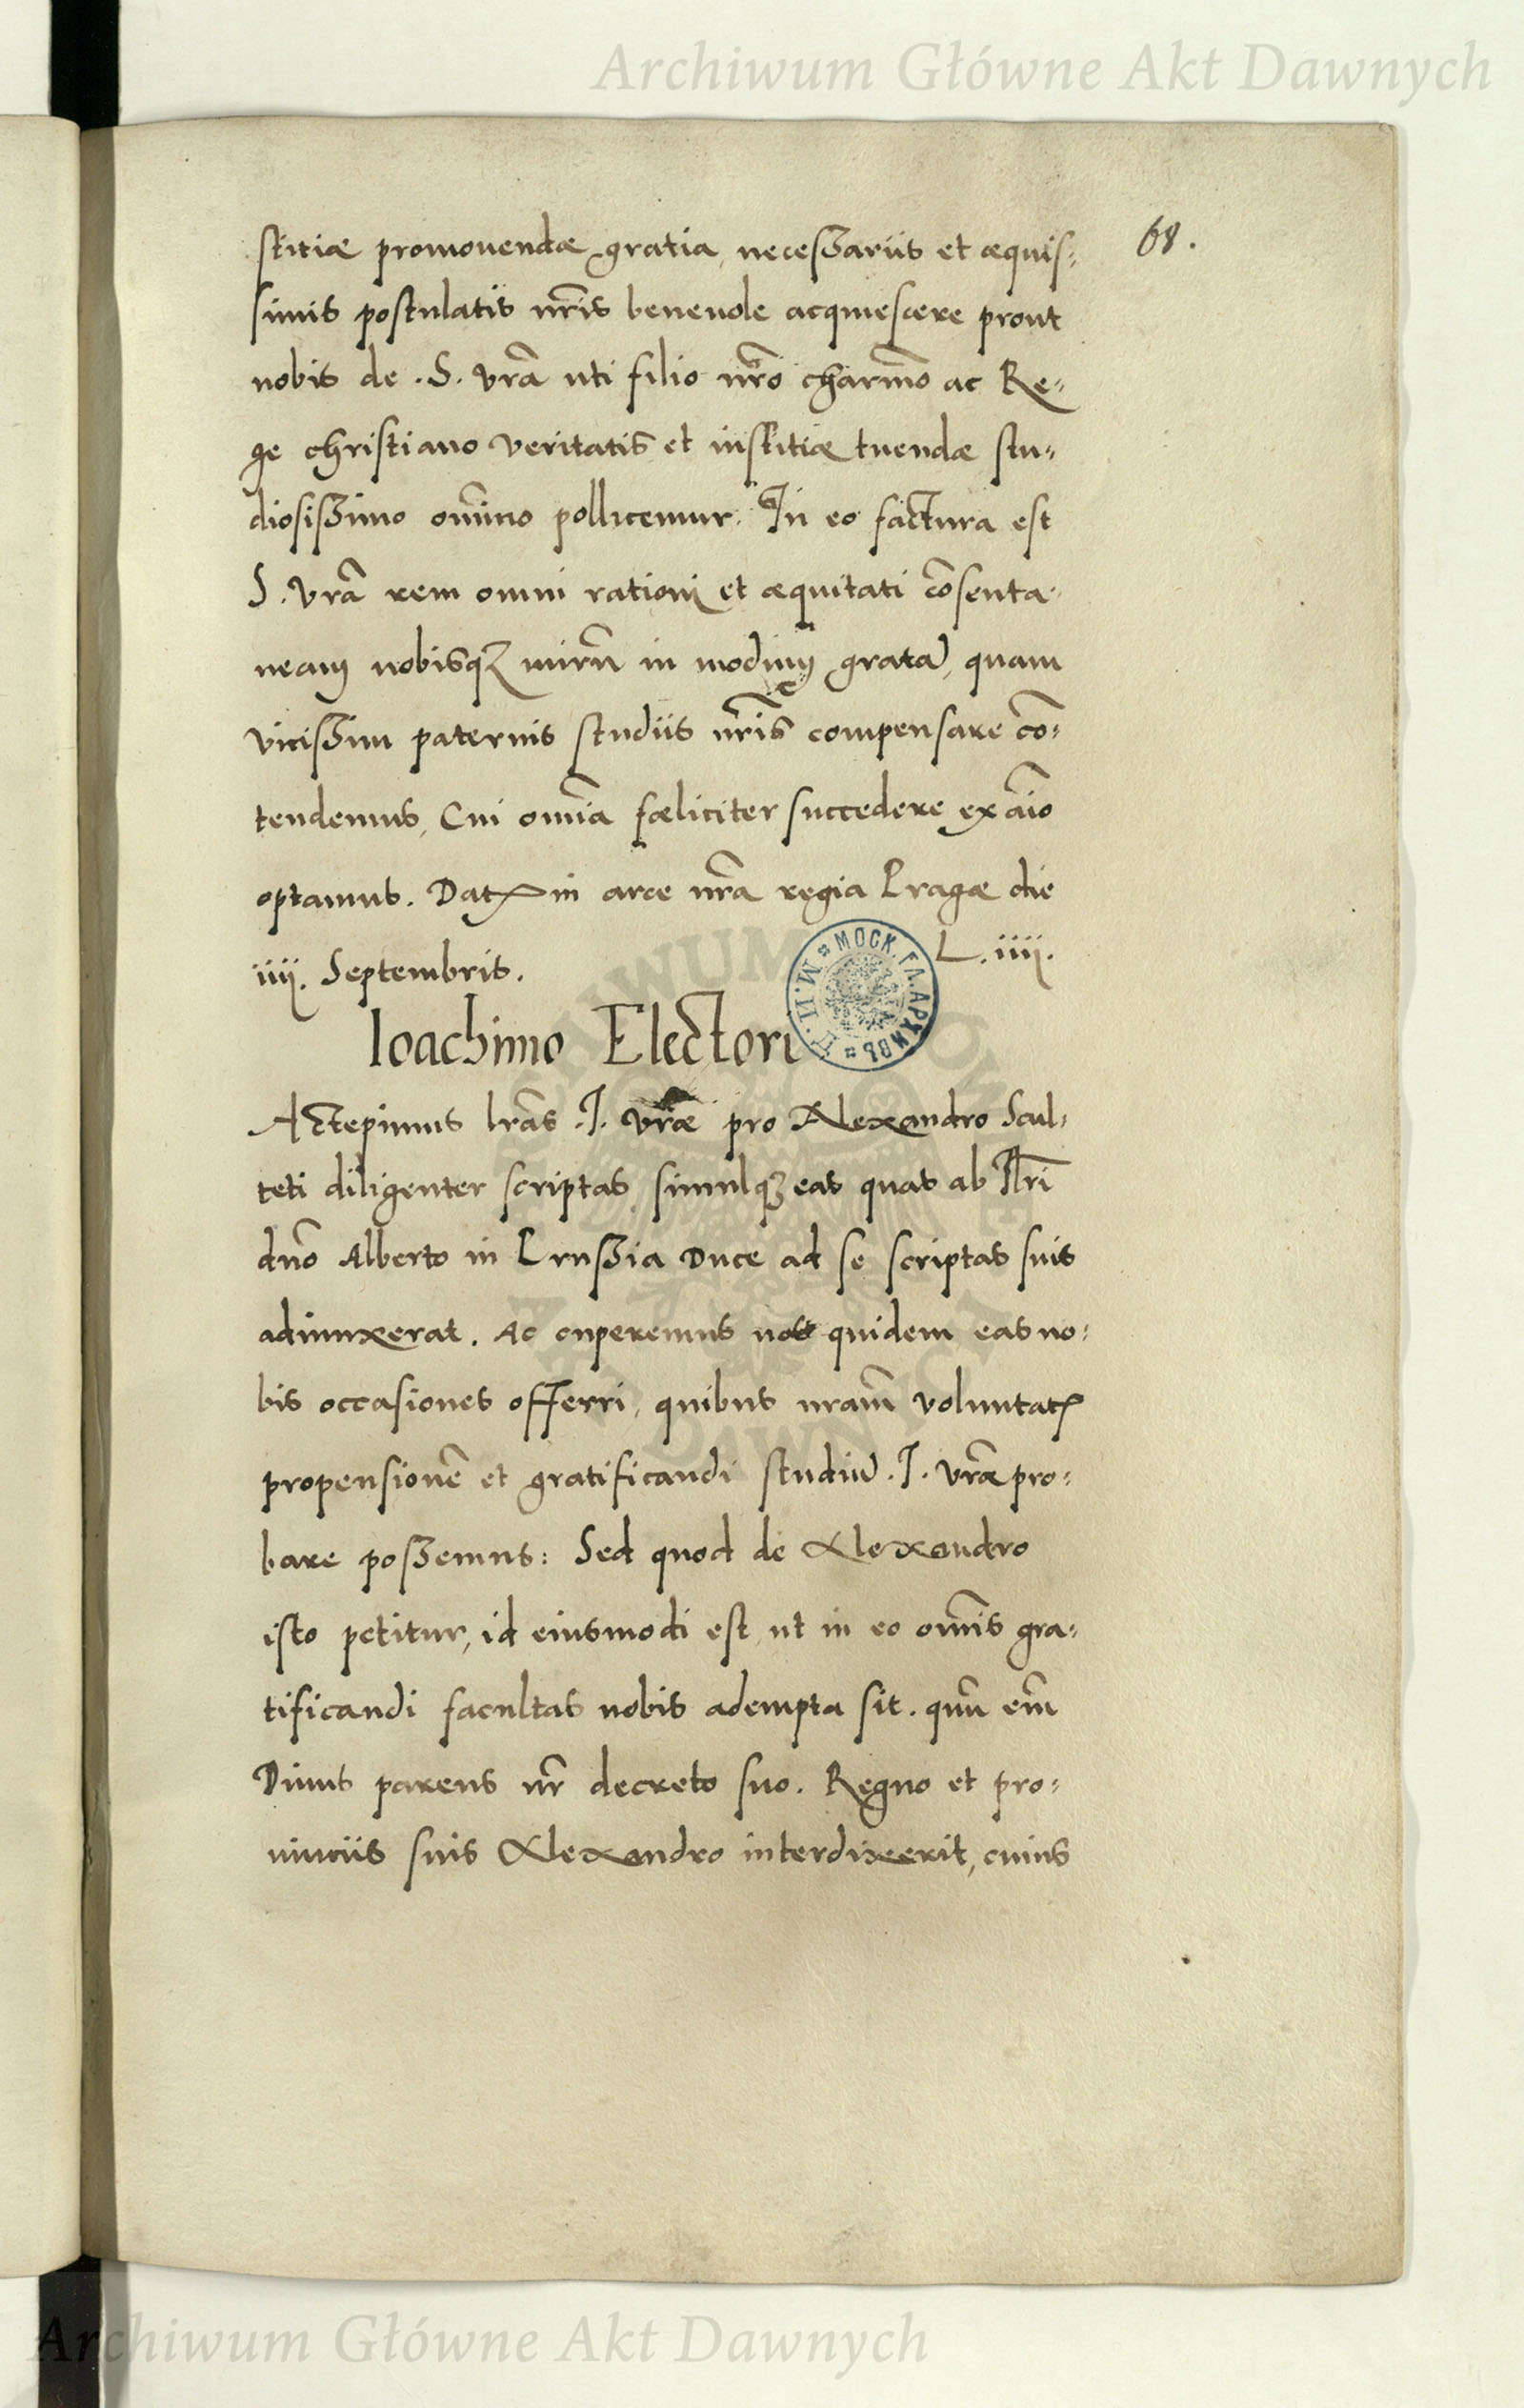 Archiwum Główne Akt Dawnych
68.
stitiæ promouendæ gratia, necessariis et æquis=
simis postulatis nr̃is beneuole acquiescere prout
nobis de .S. vr̃a uti filio nr̃o charm̃o ac Re=
ge christiano veritatis et iustitiæ tuendæ stu=
diosissimo om̃ino pollicemur. In eo factura est
S. vr̃a rem omni rationi et æquitati cõsenta=
neam nobisqꝫ mirũ in modum gratã, quam
vicissim paternis studiis nr̃is compensare cõ=
tendemus, Cui omĩa fœliciter succedere ex aĩo
optamus. Datꝫ in arce nr̃a regia Pragæ die
iiij. Septembris. L. iiij.
Ioachimo Electori
Accepimus lr̃as .I. vr̃æ pro Alexandro Scul=
teti diligenter scriptas, simulqꝫ eas quas ab Illrĩ
dño Alberto in Prussia Duce ad se scriptas suis
adiunxerat. Ac cuperemus nos quidem eas no=
bis occasiones offerri, quibus nram̃ voluntatꝫ
propensionẽ et gratificandi studiũ .I. vr̃æ pro=
bare possemus: Sed quod de Alexandro
isto petitur, id eiusmodi est, ut in eo om̃is gra=
tificandi facultas nobis adempta sit. quũ em̃
Diuus parens nr̃ decreto suo. Regno et pro=
uinciis suis Alexandro interdixerit, cuius
МОСК. ГЛ. АРХИВЪ
М. И. Д.
Archiwum Główne Akt Dawnych